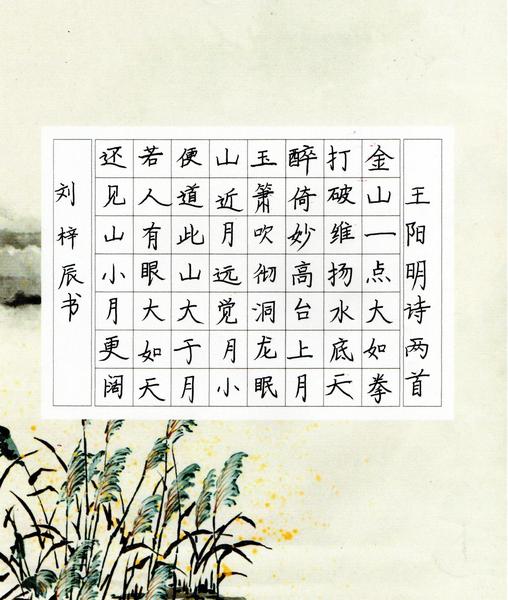 王阳明诗两首
金山一点大如拳
打破维扬水底天
醉倚妙高台上月
玉箫吹彻洞龙眠
山近月远觉月小
便道此山大于月
若人有眼大如天
还见山小月更阔
刘梓辰书